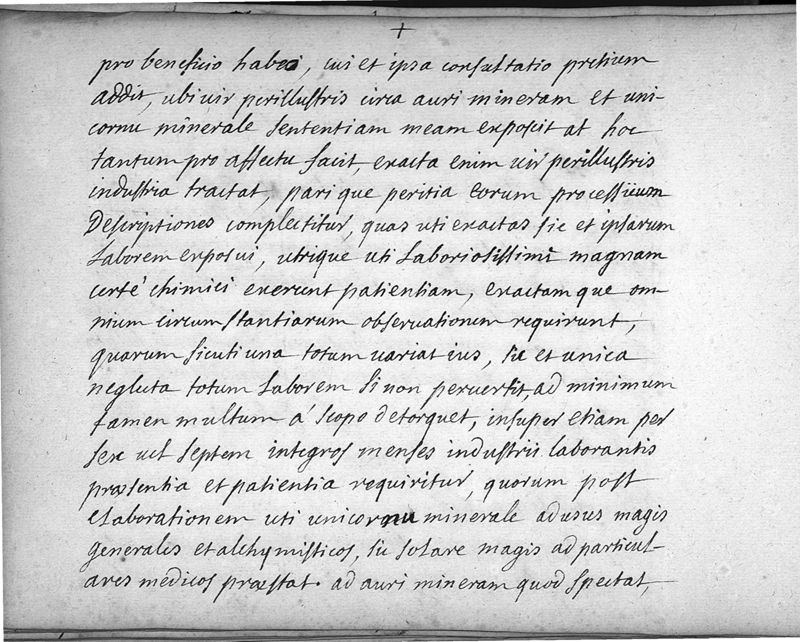 +
pro beneficio habeo, cui et ipsa consultatio pretium
addit, ubi vir perillustris circa auri mineram et uni-
cornu minerale sententiam meam exposcit at hoc
tantum pro affectu facit, exacta enim vir perillustris
industria tractat, parique peritia eorum processuum
Descriptiones complectitur, quas uti exactas sic et ipsarum
Laborem exposui, utrique uti Laboriosissimi magnam
certé chimici exerunt patientiam, exactamque om-
nium circumstantiarum observationem requirunt,
quarum sicuti una totum variat ius, sic et unica
neglecta totum Laborem si non pervertit, ad minimum
tamen multum á scopo detorquet, insuper etiam per
sex vel septem integros menses industrii laborantis
præsentia et patientia requiritur, quorum post
elaborationem uti unicornu minerale ad usus magis
generales et alchymisticos, sic solare magis ad particul-
ares medicos præstat. ad auri mineram quod spectat,